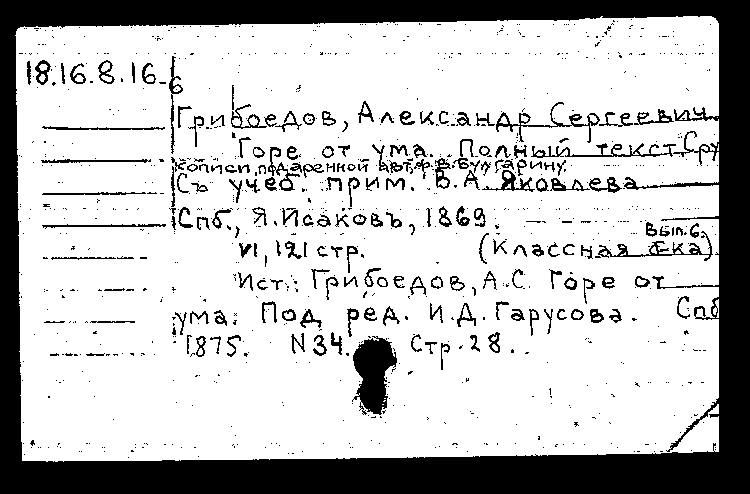 18.16.8.16-6
Грибоедов, Александр Сергеевич
Горе от ума. Полный текст Сру
кописи, подаренной авт. Ф.В. Булгарину.
Съ учеб. прим. В.А. Яковлева
Спб., Я.Исаковъ, 1869.
VI, 121 стр. (Классная б-ка) Вып.6.
Ист.: Грибоедов, А.С. Горе от
ума. Под ред. И.Д. Гарусова. Спб
1875. N34. Стр. 28.